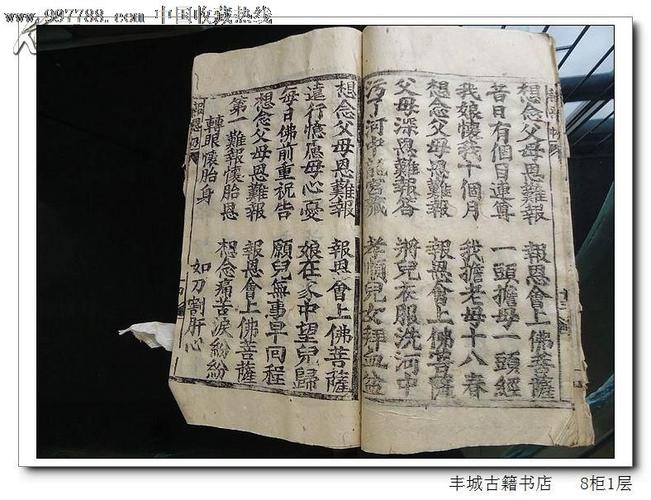 www.997788.com 中国收藏热线
想念父母恩難報 報恩會上佛菩薩
昔日有個目連尊 一頭擔母一頭經
我娘懷我十個月 我擔老母十八春
想念父母恩難報 報恩會上佛菩薩
父母深恩難報答 將兒衣服洗河中
污了河中龍宮藏 孝順兒女拜血盆
想念父母恩難報 報恩會上佛菩薩
遠行憶應母心憂 娘在家中望兒歸
每日佛前重祝告 願兒無事早回程
想念父母恩難報 報恩會上佛菩薩
第一難報懷胎恩 想念痛苦淚紛紛
轉眼懷胎身 如刀割肝心
報恩
丰城古籍书店 8柜1层